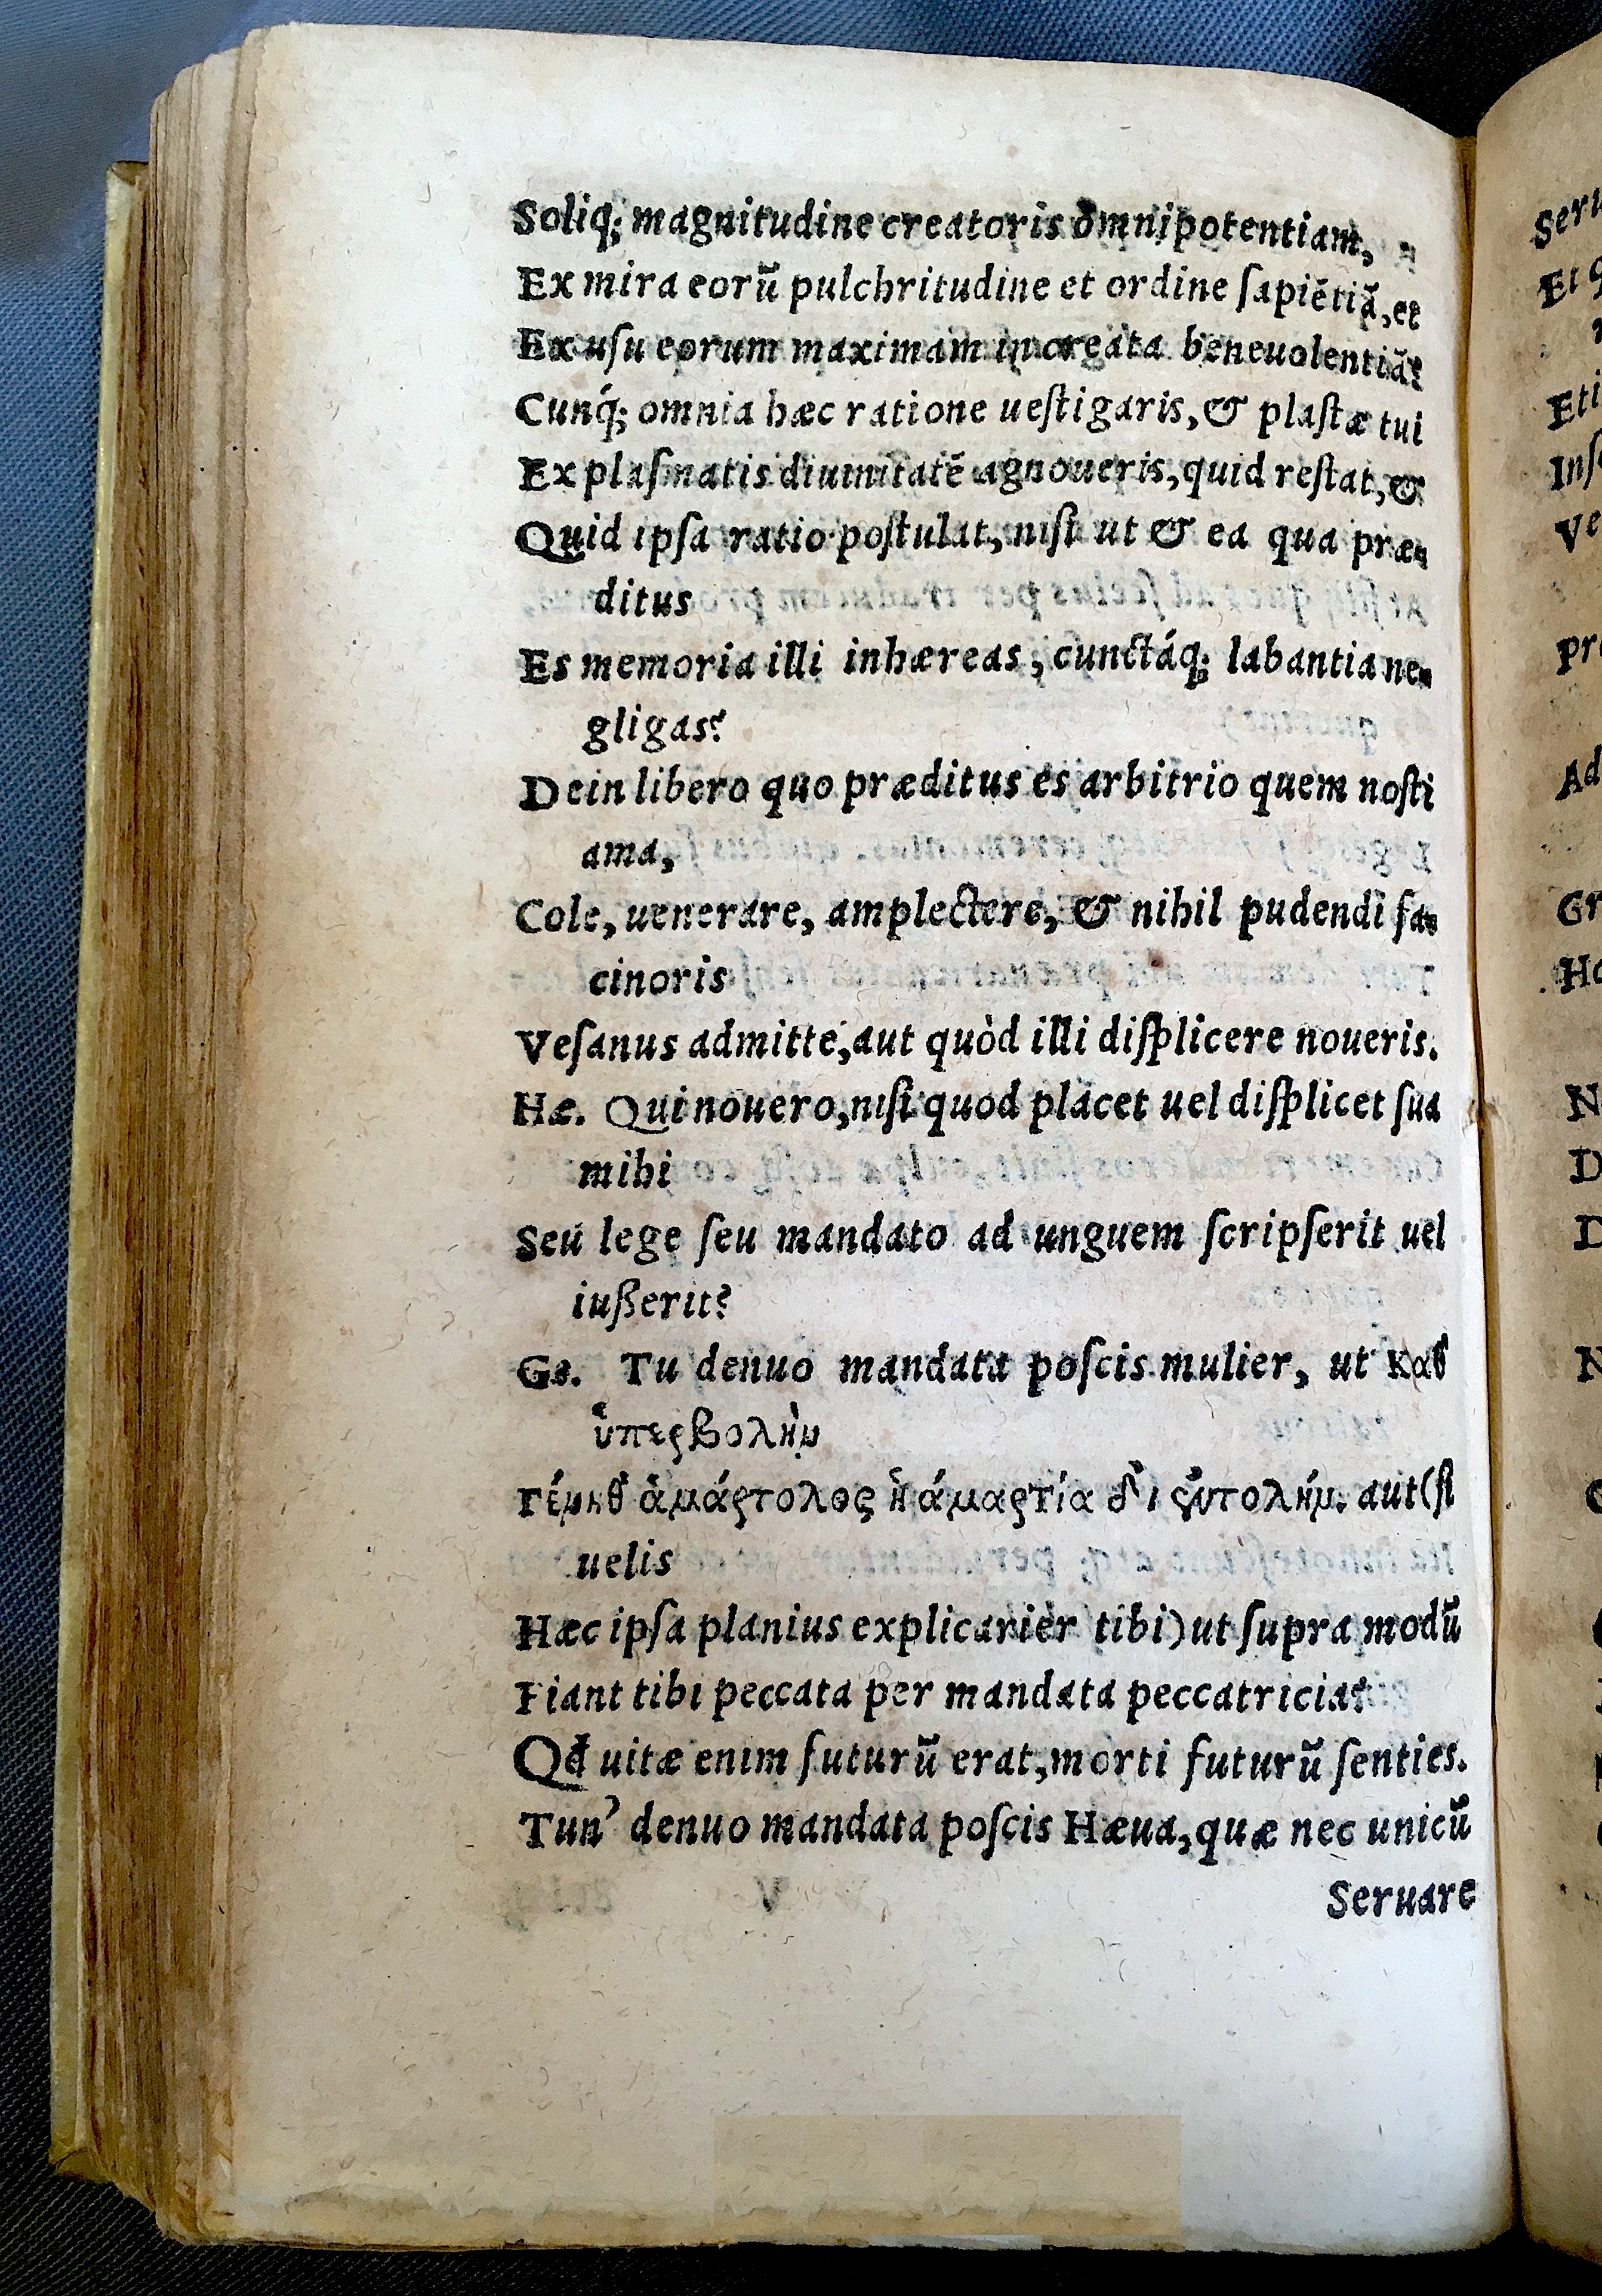 Soliq; magnitudine creatoris omnipotentiam,
Ex mira eorū pulchritudine et ordine ſapiētiā, et
Ex uſu eorum maximam in creata beneuolentiā?
Cunq́; omnia hæc ratione ueſtigaris, & plaſtæ tui
Ex plaſmatis diuinitatē agnoueris, quid reſtat, &
Quid ipſa ratio poſtulat, niſi ut & ea qua præ-
ditus
Es memoria illi inhæreas, cunctáq; labantia ne-
gligas?
Dein libero quo præditus es arbitrio quem noſti
ama,
Cole, uenerare, amplectere, & nihil pudendi fa-
cinoris
Veſanus admitte, aut quòd illi diſplicere noueris.
Hæ. Qui nouero, niſi quod placet uel diſplicet ſua
mihi
Seu lege ſeu mandato ad unguem ſcripſerit uel
iußerit?
Ge. Tu denuo mandata poſcis mulier, ut καθ
ὑπερβολὴν
Γένηθ̓ ἁμάρτολος ἡ ἁμαρτία δἰ ἐντολήν. aut (ſi
uelis
Hæc ipſa planius explicarier tibi) ut ſupra modū
Fiant tibi peccata per mandata peccatricia?
Qđ uitæ enim futurū erat, morti futurū ſenties.
Tun' denuo mandata poſcis Hæua, quæ nec unicū
Seruare
Seru
Et q
Eti
Inſ
Ve
Pr
Ad
Gr
Ho
N
D
D
N